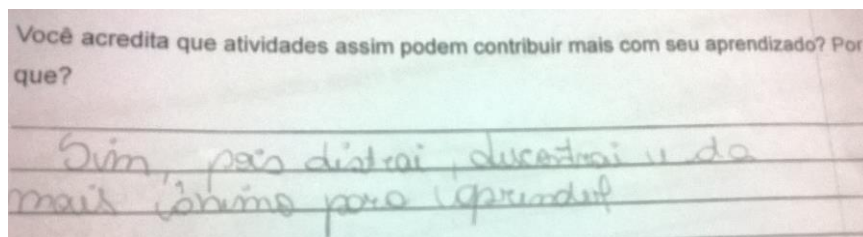 Você acredita que atividades assim podem contribuir mais com seu aprendizado? Por
que?
Sim, pois distrai, descontrai e da
mais ânimo para aprender